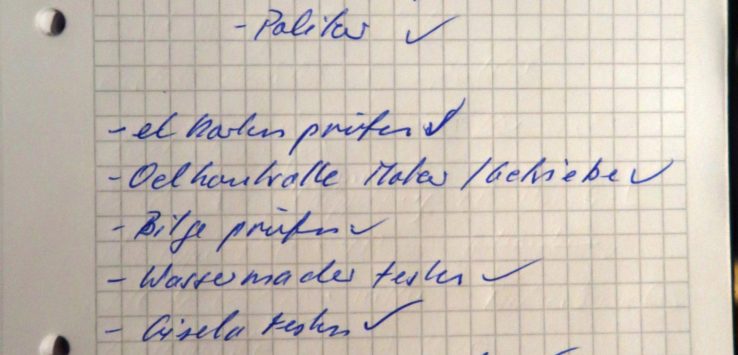 - Politur ✓
- el Karten prüfen ✓
- Oelkontrolle Motor / Getriebe ✓
- Bilge prüfen ✓
- Wassermacher testen ✓
- Gisela testen ✓